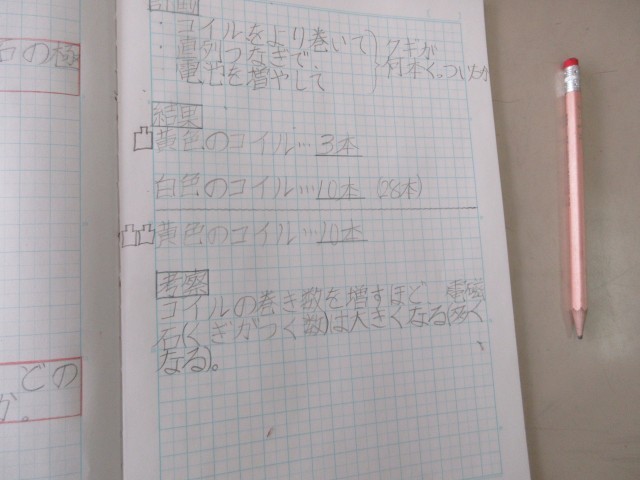 石の極
どの
か。
計画
・コイルをより巻いて
・直列つなぎで、
電池を増やして
クギが
何本くっついたか
結果
黄色のコイル…3本
白色のコイル…10本 (28本)
黄色のコイル…10本
考察
コイルの巻き数を増すほど、電磁
石(くぎがつく数)は大きくなる(多く
なる)。